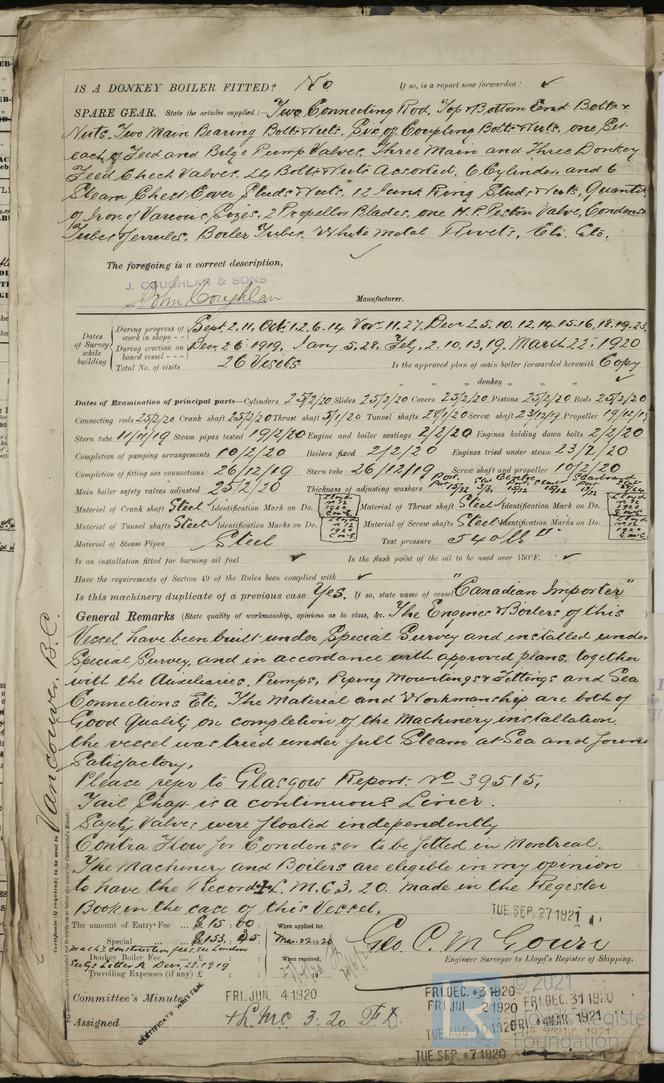 IS A DONKEY BOILER FITTED? No If so, is a report now forwarded? ✓
SPARE GEAR. State the articles supplied:— Two Connecting Rod, Top & Bottom End Bolts &
Nuts. Two Main Bearing Bolts & Nuts, Six of Coupling Bolts & Nuts, one Set
each of Feed and Bilge Pump Valves, Three Main and Three Donkey
Feed Check Valves. 24 Bolts & Nuts Assorted, 6 Cylinder, and 6
Steam Chest Cover Studs & Nuts. 12 Junk Ring Studs & Nuts, Quantity
of Iron of Various Sizes, 2 Propellor Blades, one H.P. Piston Valve, Condenser
Tubes & Ferrules. Boiler Tubes. White metal Rivets, Etc. Etc.
The foregoing is a correct description,
J. COUGHLAN & SONS
John Coughlan Manufacturer.
Dates of Survey while building
During progress of work in shops - - Sept. 2. 11, Oct. 1. 2. 6. 14. Nov. 11. 27, Dec. 2. 5. 10. 12. 14. 15. 16. 18. 19. 23.
During erection on board vessel - - - Dec. 26. 1919. Jany 5. 28. Feb. 2. 10. 13. 19. March 22. 1920
Total No. of visits 26 Visits Is the approved plan of main boiler forwarded herewith Copy
" " donkey " " " ✓
Dates of Examination of principal parts—Cylinders 25/2/20 Slides 25/2/20 Covers 25/2/20 Pistons 25/2/20 Rods 25/2/20
Connecting rods 25/2/20 Crank shaft 25/2/20 Thrust shaft 5/1/20 Tunnel shafts 28/1/20 Screw shaft 23/12/19 Propeller 19/12/19
Stern tube 11/11/19 Steam pipes tested 19/2/20 Engine and boiler seatings 2/2/20 Engines holding down bolts 2/2/20
Completion of pumping arrangements 10/2/20 Boilers fixed 2/2/20 Engines tried under steam 23/2/20
Completion of fitting sea connections 26/12/19 Stern tube 26/12/19 Screw shaft and propeller 10/2/20
Main boiler safety valves adjusted 25/2/20 Thickness of adjusting washers
Material of Crank shaft Steel Identification Mark on Do. Material of Thrust shaft Steel Identification Mark on Do.
Material of Tunnel shafts Steel Identification Marks on Do. Material of Screw shafts Steel Identification Marks on Do.
Material of Steam Pipes Steel Test pressure 540 lb □"
Is an installation fitted for burning oil fuel ✓ Is the flash point of the oil to be used over 150°F. ✓
Have the requirements of Section 49 of the Rules been complied with ✓
Is this machinery duplicate of a previous case Yes. If so, state name of vessel "Canadian Importer"
General Remarks (State quality of workmanship, opinions as to class, &c. The Engines & Boilers of this
Vessel have been built under Special Survey and installed under
Special Survey, and in accordance with approved plans, together
with the Auxiliaries, Pumps, Piping Mountings & Fittings and Sea
Connections Etc. The Material and Workmanship are both of
Good Quality, on completion of the Machinery installation
the vessel was tried under full Steam at Sea and found
Satisfactory.
Please refer to Glasgow Report. No 39515,
Tail Shaft is a continuous Liner.
Safety Valves were floated independently
Contra Flow for Condenser to be fitted in Montreal.
The Machinery and Boilers are eligible in my opinion
to have the Record + L.M.C. 3. 20 made in the Register
Book in the case of this Vessel.
Vancouver, B.C.
TUE SEP. 27 1921
The amount of Entry Fee ... £ 15. 00 When applied for,
Special ... £ 153. 45. Mar. 22 1920
Mach'y construction fees in London
Donkey Boiler Fee ... £ When received,
Travelling Expenses (if any) £
Geo. C. McGown
Engineer Surveyor to Lloyd's Register of Shipping.
Committee's Minute FRI. JUN. 4 1920
Assigned + L.M.C. 3. 20 F.D.
CERTIFICATE WRITTEN.
FRI. DEC. 3 1920
FRI. DEC. 31 1920
FRI. JUL. 2 1920
TUE. SEP. 7 1920
© 2021
Lloyd's Register
Foundation